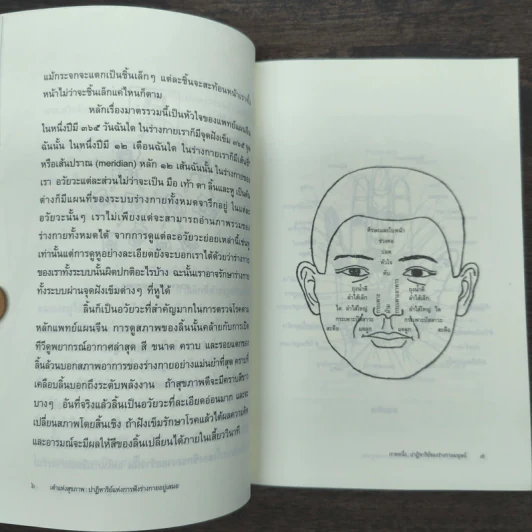 แม้กระจกจะแตกเป็นชิ้นเล็กๆ แต่ละชิ้นจะสะท้อน
หน้าไม่ว่าจะชิ้นเล็กแค่ไหนก็ตาม
หลักเรื่องมาตรรวมนี้เป็นหัวใจของแพทย์แผนจีน
ในหนึ่งปีมี ๓๖๕ วันฉันใด ในร่างกายเราก็มีจุดฝังเข็ม ๓๖๕ จุด
ฉันนั้น ในหนึ่งปีมี ๑๒ เดือนฉันใด ในร่างกายเราก็มี
หรือเส้นปราณ (meridian) หลัก ๑๒ เส้นฉันนั้น ในร่างกาย
เรา อวัยวะแต่ละส่วนไม่ว่าจะเป็น มือ เท้า ตา ลิ้นและหู เป็นต้น
ต่างก็มีแผนที่ของระบบร่างกายทั้งหมดจารึกอยู่ ในแต่ละ
อวัยวะนั้นๆ เราไม่เพียงแต่จะสามารถอ่านภาพรวมของ
ร่างกายทั้งหมดได้ จากการดูแต่ละอวัยวะย่อยเหล่านี้
เท่านั้นแต่การดูอย่างละเอียดยังจะบอกเราได้ด้วยว่าร่างกาย
ของเราทั้งระบบนั้นผิดปกติอะไรบ้าง ฉะนั้นเราอาจรักษาร่างกาย
ทั้งระบบผ่านจุดฝังเข็มต่างๆ ที่หูได้
ลิ้นก็เป็นอวัยวะที่สำคัญมากในการตรวจโรค
หลักแพทย์แผนจีน การดูสภาพของลิ้นนั้นคล้ายกับการเปิด
ทีวีดูพยากรณ์อากาศล่าสุด สี ขนาด คราบ และรอยแตกของ
ลิ้นล้วนบอกสภาพอาการของร่างกายอย่างแม่นยำที่สุด คราบที่
เคลือบลิ้นบอกถึงระดับพลังงาน ถ้าสุขภาพดีจะมีคราบสีขาว
บางๆ อันที่จริงแล้วลิ้นเป็นอวัยวะที่ละเอียดอ่อนมาก และจะ
เปลี่ยนสภาพโดยสิ้นเชิง ถ้าฝังเข็มรักษาโรคแล้วได้ผล
และอารมณ์จะมีผลให้สีของลิ้นเปลี่ยนได้ภายในเสี้ยววินาที
๖ เต๋าแห่งสุขภาพ : ปาฏิหาริย์แห่งการฟังร่างกายอยู่เสมอ
ศีรษะและใบหน้า
ช่วงคอ
ปอด
หัวใจ
ตับ
ถุงน้ำดี ถุงน้ำดี
ลำไส้เล็ก ลำไส้เล็ก
ไต ลำไส้ใหญ่ ลำไส้ใหญ่ ไต
กระเพาะปัสสาวะ ม้าม กระเพาะปัสสาวะ
สะดือ มดลูก มดลูก สะดือ
กระเพาะอาหาร กระเพาะอาหาร
ภาคหนึ่ง : ปาฏิหาริย์ของร่างกายมนุษย์ ๗